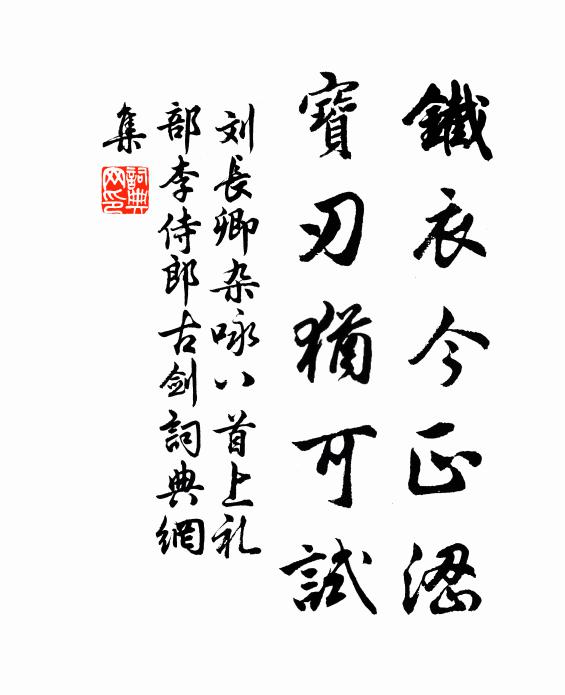 鐵衣今正澀
寶刃猶可試
刘長卿杂咏八首上礼
部李侍郎古劍詞典網
集
詞典
网印